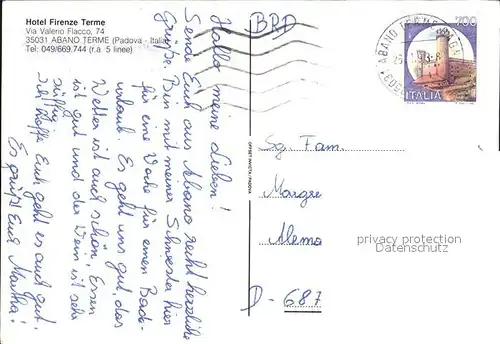 Hotel Firenze Terme
Via Valerio Flacco, 74
35031 ABANO TERME (Padova - Italia)
Tel. 049/669.744 (r.a 5 linee)
Hallo meine Lieben!
Sende Euch aus Abano recht herzliche
Grüße. Bin mit meiner Schwester hier
für eine Woche für einen Bade-
urlaub. Es geht uns gut, das
Wetter ist auch schön, Essen
ist gut und der Wein ist sehr
süffig.
Ich hoffe Euch geht es auch gut.
Es grüßt Euch Martha!
BRD
ABANO TERME
700
ITALIA
OFFSET INVICTA-PADOVA
Sg. Fam.
Margre
Alema
D - 687
privacy protection
Datenschutz